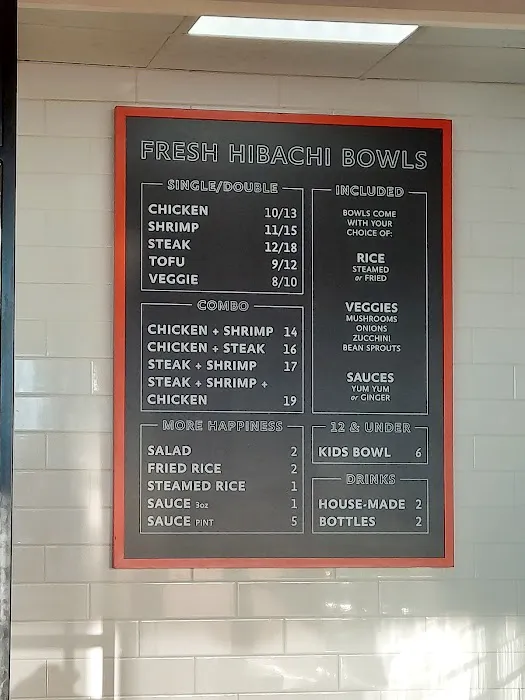 FRESH HIBACHI BOWLS
SINGLE/DOUBLE
CHICKEN 10/13
SHRIMP 11/15
STEAK 12/18
TOFU 9/12
VEGGIE 8/10
COMBO
CHICKEN + SHRIMP 14
CHICKEN + STEAK 16
STEAK + SHRIMP 17
STEAK + SHRIMP +
CHICKEN 19
MORE HAPPINESS
SALAD 2
FRIED RICE 2
STEAMED RICE 1
SAUCE 3oz 1
SAUCE PINT 5
INCLUDED
BOWLS COME
WITH YOUR
CHOICE OF:
RICE
STEAMED
or FRIED
VEGGIES
MUSHROOMS
ONIONS
ZUCCHINI
BEAN SPROUTS
SAUCES
YUM YUM
or GINGER
12 & UNDER
KIDS BOWL 6
DRINKS
HOUSE-MADE 2
BOTTLES 2